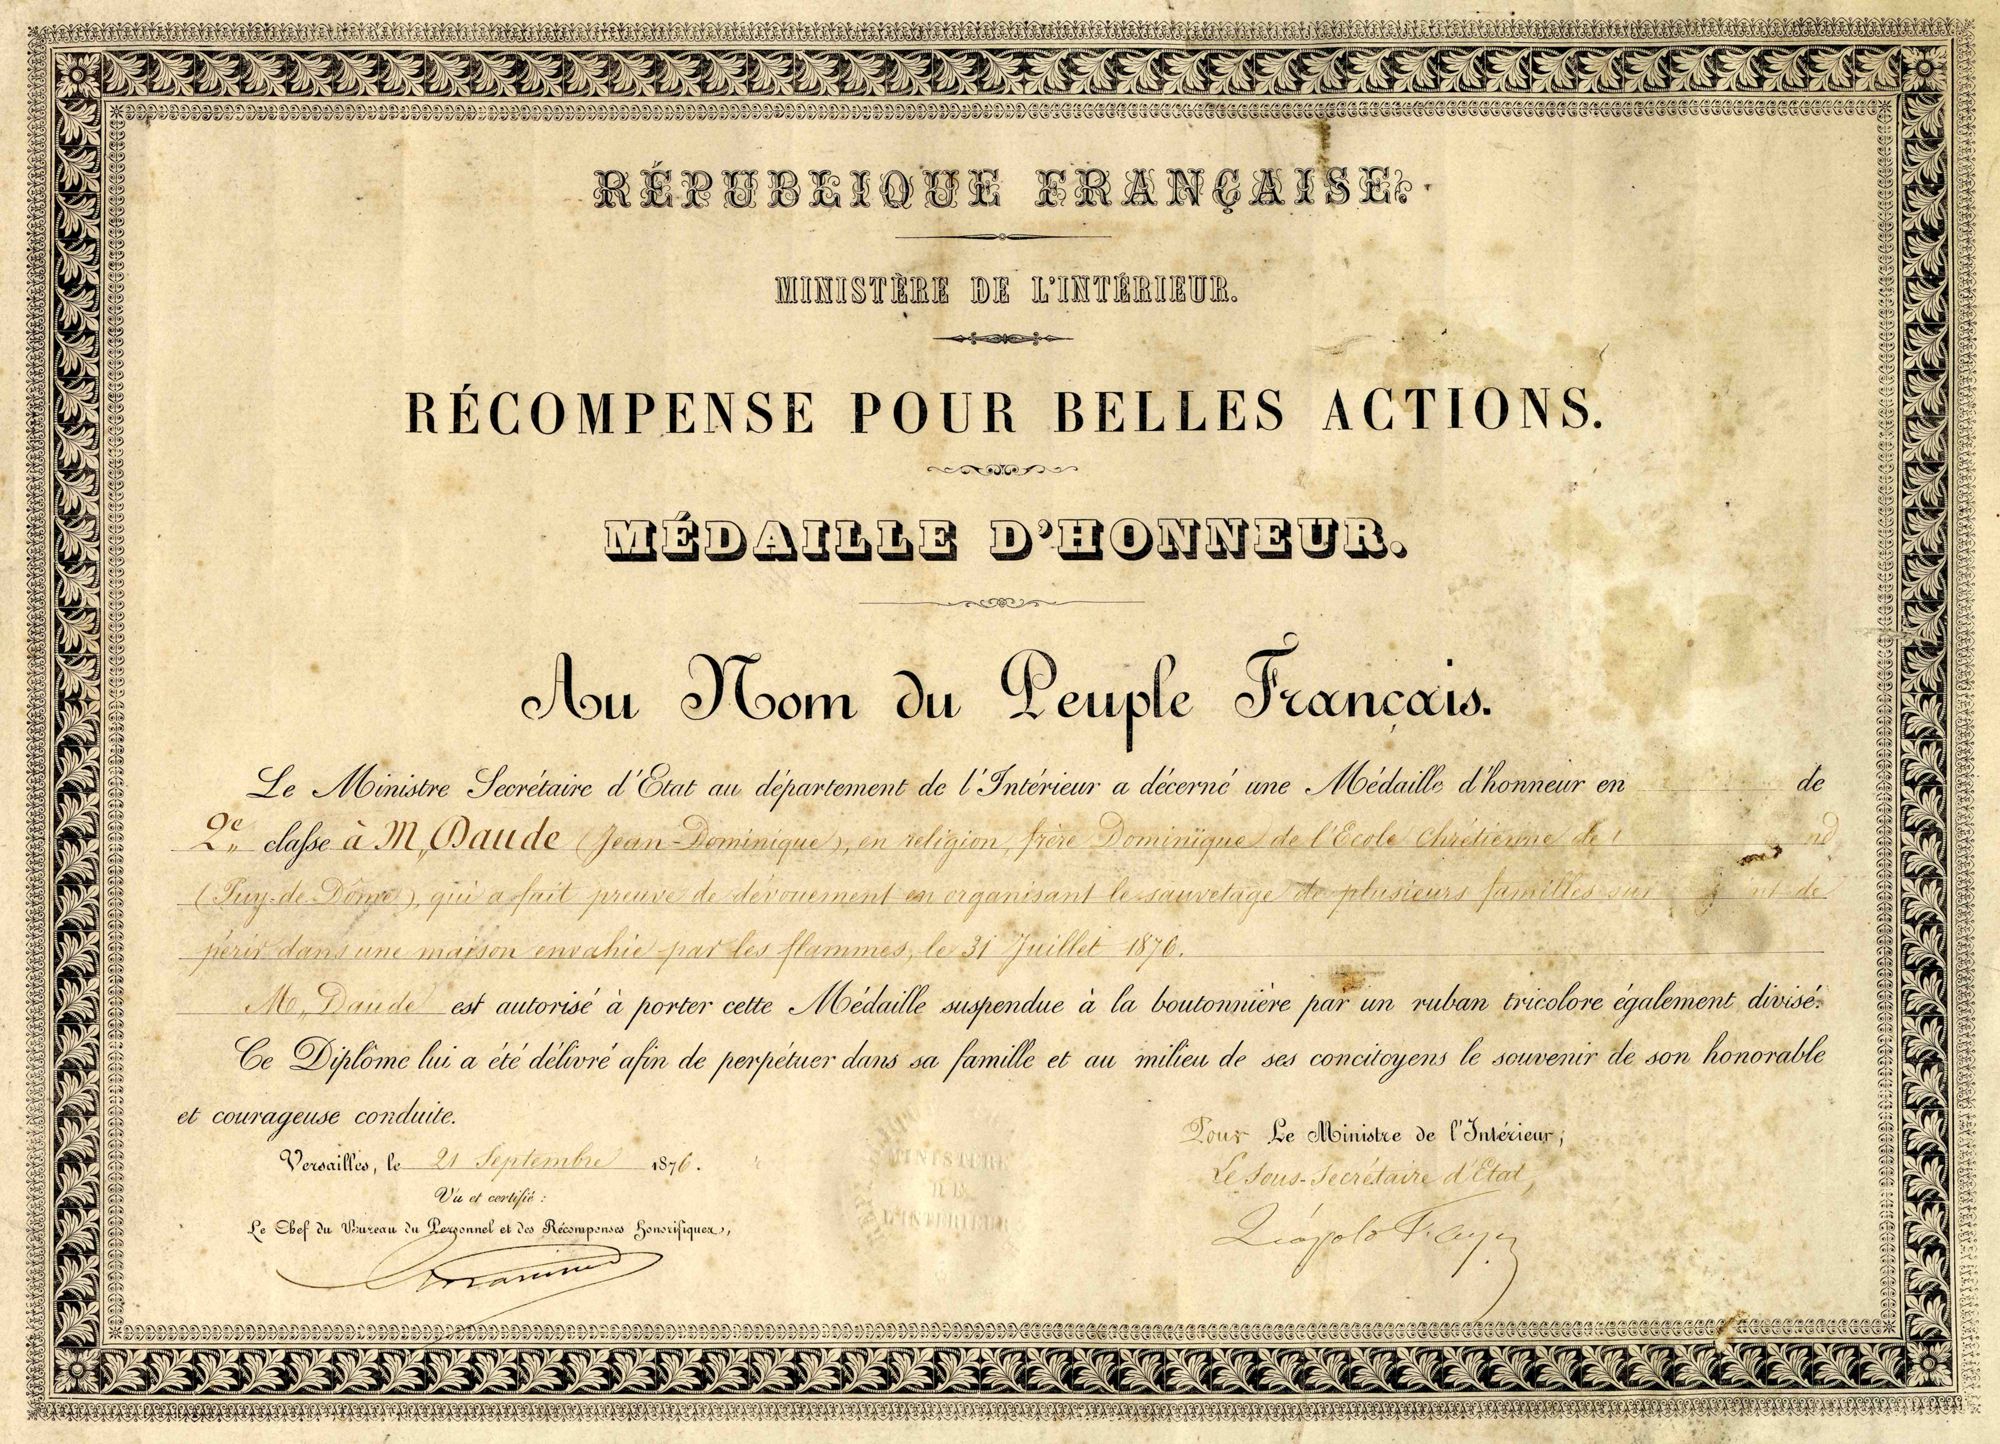 RÉPUBLIQUE FRANÇAISE.
MINISTÈRE DE L'INTÉRIEUR.
RÉCOMPENSE POUR BELLES ACTIONS.
MÉDAILLE D'HONNEUR.
Au Nom du Peuple Français.
Le Ministre Secrétaire d'Etat au département de l'Intérieur a décerné une Médaille d'honneur en de
2e classe à M. Daude (Jean-Dominique), en religion, frère Dominique de l'Ecole Chrétienne de
(Puy-de-Dôme), qui a fait preuve de dévouement en organisant le sauvetage de plusieurs familles sur de
périr dans une maison envahie par les flammes, le 31 Juillet 1876.
M. Daude est autorisé à porter cette Médaille suspendue à la boutonnière par un ruban tricolore également divisé.
Ce Diplôme lui a été délivré afin de perpétuer dans sa famille et au milieu de ses concitoyens le souvenir de son honorable
et courageuse conduite.
Versailles, le 21 Septembre 1876.
Vu et certifié :
Le Chef du Bureau du Personnel et des Récompenses Honorifiques,
Pour Le Ministre de l'Intérieur,
Le Sous-Secrétaire d'Etat,
MINISTÈRE
DE
L'INTÉRIEUR